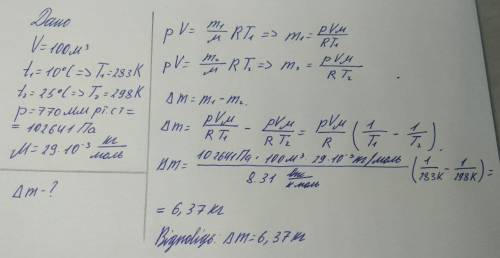 Дано
V=100м³
t₁=10°C=>T₁=283K
t₂=25°C=>T₂=298K
p=770 мм рт.ст=
=102641 Па
M=29·10⁻³ кг/моль
Δm-?
pV= m₁/μ RT₁ => m₁= pVμ/RT₁
pV= m₂/μ RT₂ => m₂= pVμ/RT₂.
Δm=m₁-m₂.
Δm= pVμ/RT₁ - pVμ/RT₂ = pVμ/R (1/T₁ - 1/T₂).
Δm= 102641 Па·100м³·29·10⁻³кг/моль / 8.31 Дж/К моль (1/283K - 1/298K)=
=6,37кг
Відповідь: Δm=6,37кг